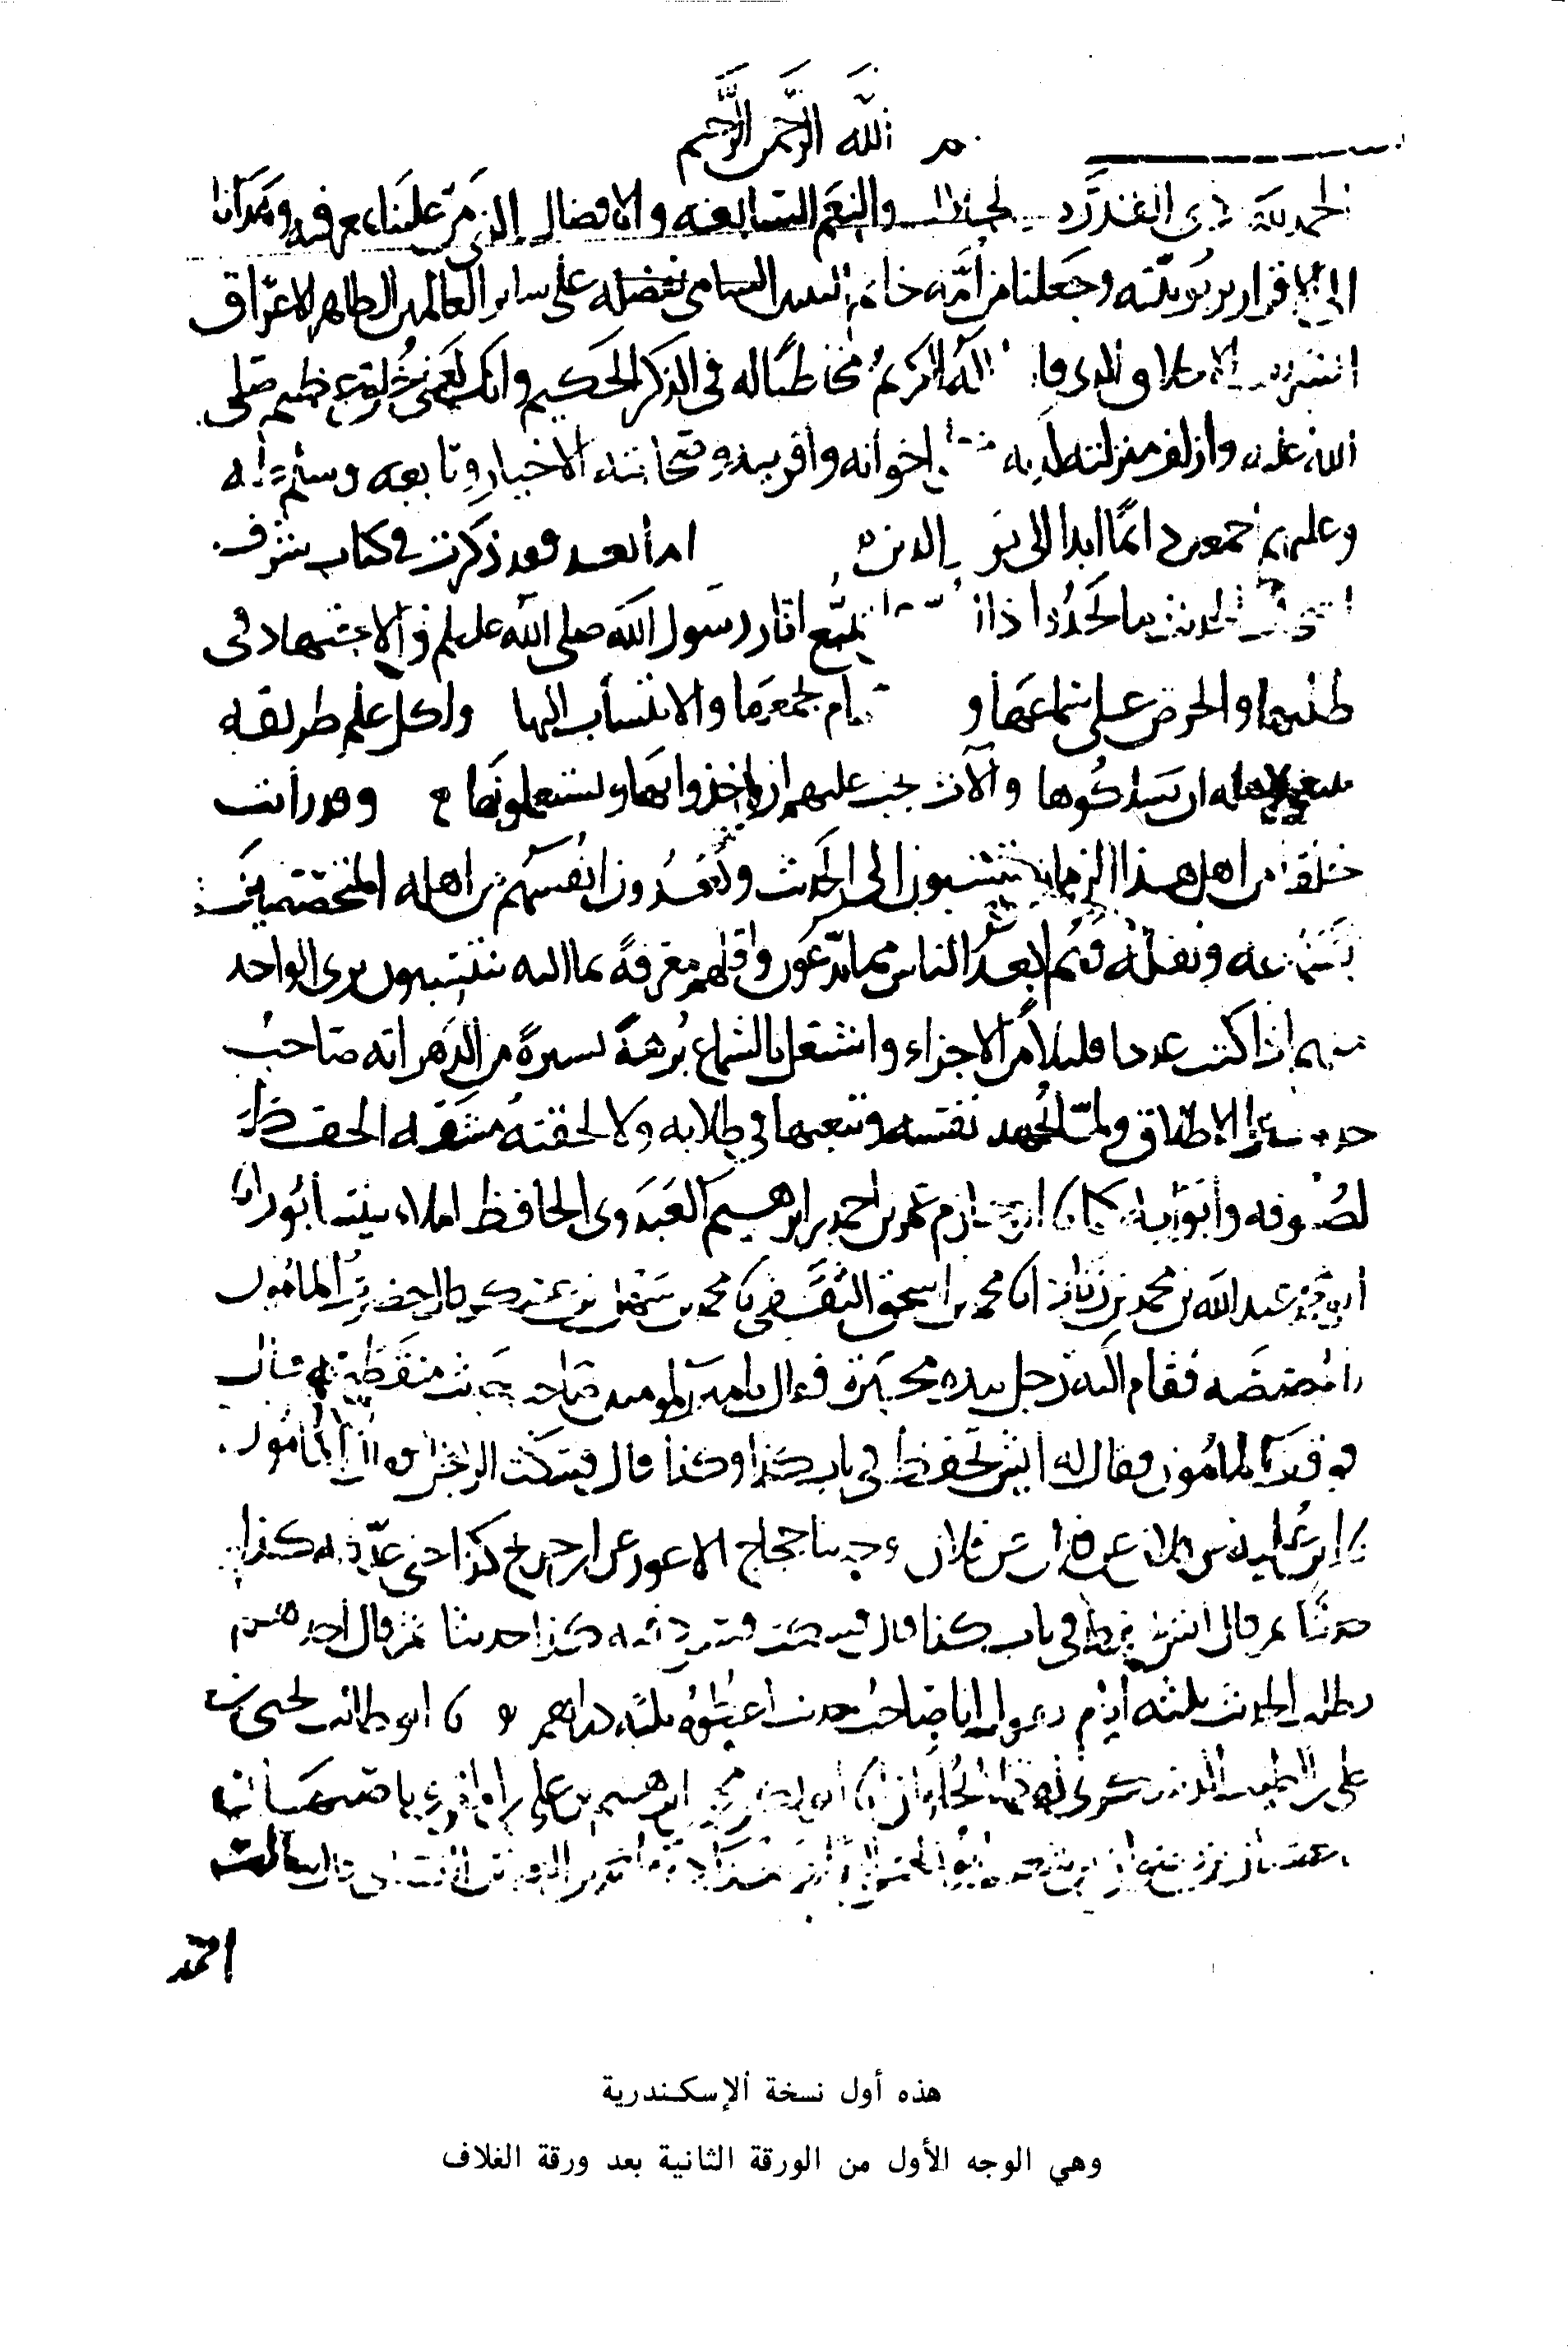 بسم الله الرحمن الرحيم
الحمد لله ذي القدرة والجلال والنعم السابغة والافضال الذي من علينا بمعرفته وهدانا
الى الاقرار بربوبيته وجعلنا من أمة خاتم النبيين السامي بفضله على سائر العالمين الطاهر الاعراق
الشريف الاخلاق الذي قال الله الكريم مخاطبا له في الذكر الحكيم وانك لعلى خلق عظيم صلى
الله عليه وازلف منزلته لديه وعلى اخوانه واقربيه وصحابته الاخيار وتابعيه وسلم عليه
وعليهم اجمعين دائما ابدا الى يوم الدين اما بعد فقد ذكرت في كتاب شرف
اصحاب الحديث ما يحدو ذا الهمة على تتبع اثار رسول الله صلى الله عليه وسلم والاجتهاد في
طلبها والحرص على سماعها والاهتمام بجمعها والانتساب اليها ولكل علم طريقة
ينبغي لاهله ان يسلكوها والات يجب عليهم ان ياخذوا بها ويستعملوها وقد رأيت
خلقا من اهل هذا الزمان ينتسبون الى الحديث ويعدون انفسهم من اهله المتخصصين
بسماعه ونقله وهم ابعد الناس مما يدعون واقلهم معرفة بما اليه ينتسبون يرى الواحد
منهم اذا كتب عددا قليلا من الاجزاء واشتغل بالسماع برهة يسيرة من الدهر انه صاحب
حديث على الاطلاق ولما يجهد نفسه ويتعبها في طلابه ولا لحقته مشقة الحفظ
لصنوفه وأبوابه ابو حازم عمر بن احمد بن ابراهيم العبدوي الحافظ املاء بنيسابور
عبد الله بن محمد بن محمد بن اسحق الثقفي محمد بن سهل بن عسكر قال حضرت المامون
بالمصيصة فقام اليه رجل بيده محبرة فقال يا امير المومنين صاحب حديث منقطع به قال
فوقف المامون فقال له أيش تحفظ في باب كذا وكذا قال فسكت الرجل فقال المامون
بن علية عن فلان عن فلان وحدثنا حجاج الاعور عن ابن جريج كذا حتى عدد فيه كذا
حديثا ثم قال ايش تحفظ في باب كذا قال فسكت فسرد فيه كذا حديثا ثم قال أحدهم
يطلب الحديث ثلثة أيام يقول انا صاحب حديث اعطوه ثلثة دراهم ابو طالب يحيى بن
علي بن الطيب الدسكري لفظا بحلوان ابو بكر محمد بن ابراهيم بن علي بن المقري باصبهان
سألت
احمد
هذه أول نسخة الإسكندرية
وهي الوجه الأول من الورقة الثانية بعد ورقة الغلاف